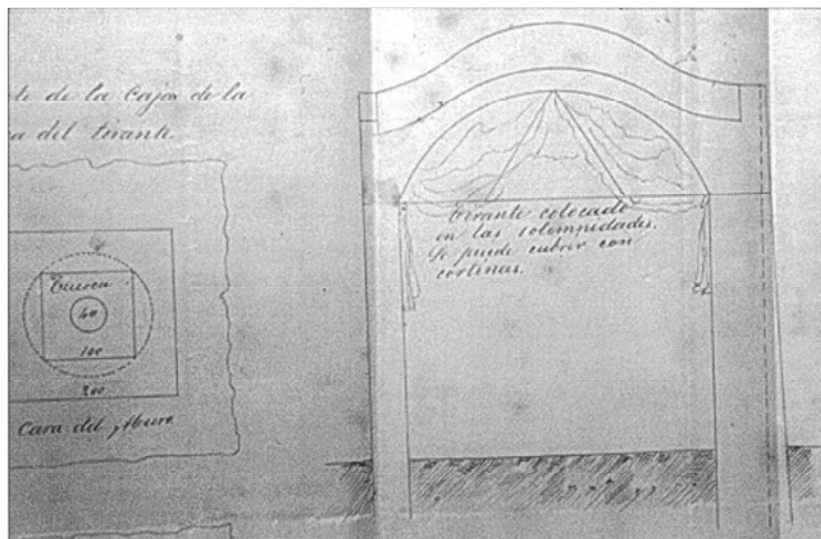 te de la Caja de la
a del tirante.
Tuerca
40
100
200
Cara del Muro
tirante colocado
en las solemnidades.
Se puede cubrir con
cortinas.